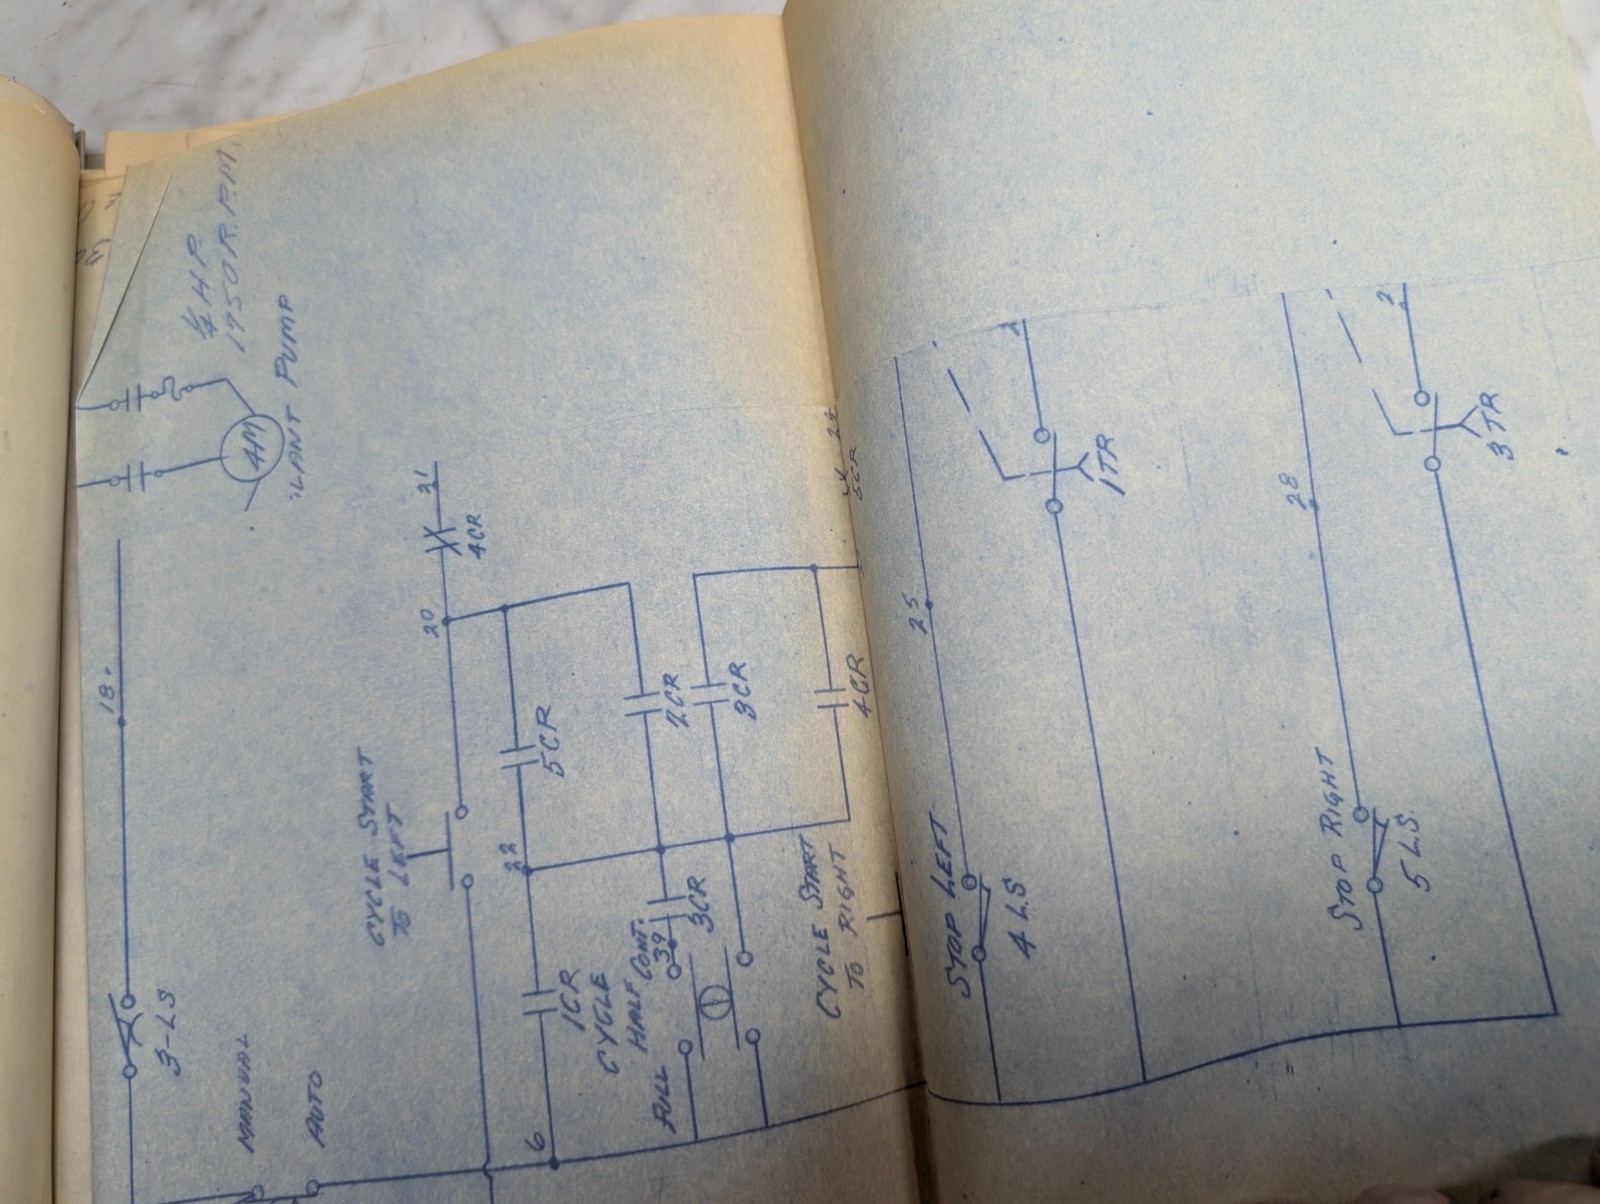 1/4 H.P.
1750 R.P.M.
4M
LANT PUMP
18.
3-LS
MANUAL
AUTO
31
4CR
20
CYCLE START
TO LEFT
5CR
22
1CR
2CR
3CR
4CR
CYCLE
HALF CONT.
39
3CR
FULL
6
CYCLE START
TO RIGHT
24
5CR
25
STOP LEFT
4 LS
1TR
28
STOP RIGHT
5 LS.
2
3TR